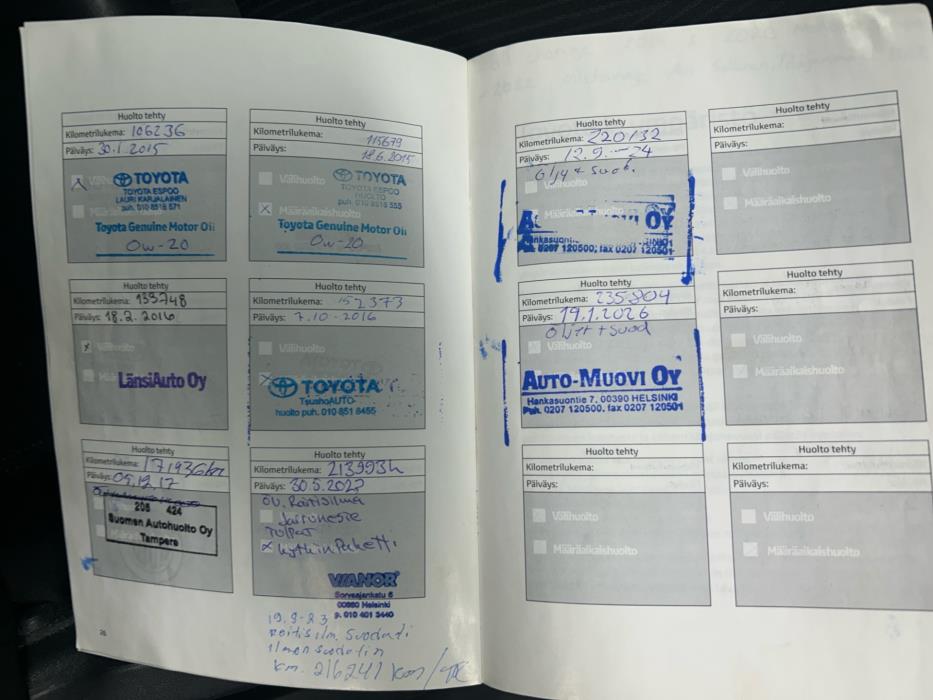 Huolto tehty
Kilometrilukema: 106236
Päiväys: 30.1.2015
Välihuolto
TOYOTA
TOYOTA ESPOO
LAURI KARJALAINEN
puh. 010 8518 571
Toyota Genuine Motor Oil
0W-20
Huolto tehty
Kilometrilukema: 115679
Päiväys: 18.6.2015
Välihuolto
TOYOTA
TOYOTA ESPOO
HUOLTO
puh. 010 8518 555
Määräaikaishuolto
Toyota Genuine Motor Oil
0W-20
Huolto tehty
Kilometrilukema: 133748
Päiväys: 18.2.2016
Välihuolto
LänsiAuto Oy
Huolto tehty
Kilometrilukema: 152373
Päiväys: 7.10-2016
Välihuolto
TOYOTA
TsushoAUTO
huolto puh. 010 851 8455
Huolto tehty
Kilometrilukema: 171936km
Päiväys: 05.12.17
206 424
Suomen Autohuolto Oy
Tampere
Huolto tehty
Kilometrilukema: 213993
Päiväys: 30.5.2022
Öv. Raitisilma
Jarruneste
Tulpat
WIANOR
Sorvaajankatu 6
00880 Helsinki
p. 010 401 3440
19.9-23
ilman suodatin
km. 216241 km
26
Huolto tehty
Kilometrilukema: 220132
Päiväys: 12.9.-24
Öljy + Suod.
Määräaikaishuolto
OY
Hankasuontie
Puh. 0207 120500, fax 0207 120501
Huolto tehty
Kilometrilukema:
Päiväys:
Välihuolto
Määräaikaishuolto
Huolto tehty
Kilometrilukema: 235804
Päiväys: 19.1.2026
Välihuolto
AUTO-MUOVI OY
Hankasuontie 7, 00390 HELSINKI
Puh. 0207 120500, fax 0207 120501
Huolto tehty
Kilometrilukema:
Päiväys:
Välihuolto
Määräaikaishuolto
Huolto tehty
Kilometrilukema:
Päiväys:
Välihuolto
Määräaikaishuolto
Huolto tehty
Kilometrilukema:
Päiväys:
Välihuolto
Määräaikaishuolto